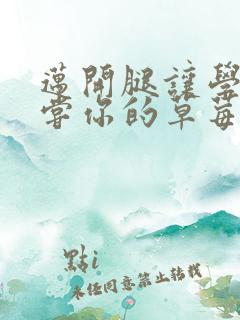 邁開腿讓學
嘗你的草莓
點i
未經同意禁止轉載